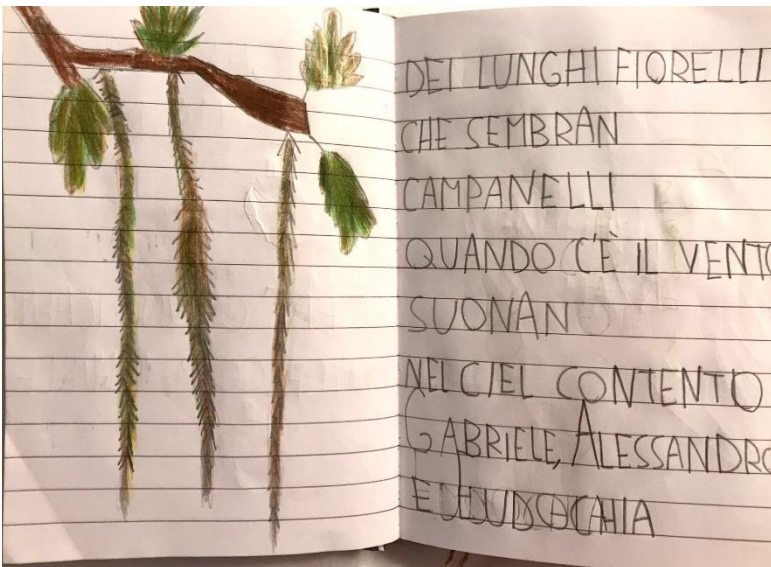 DEI LUNGHI FIORELLI
CHE SEMBRAN
CAMPANELLI
QUANDO C'È IL VENTO
SUONAN
NEL CIEL CONTENTO
GABRIELE, ALESSANDRO
E